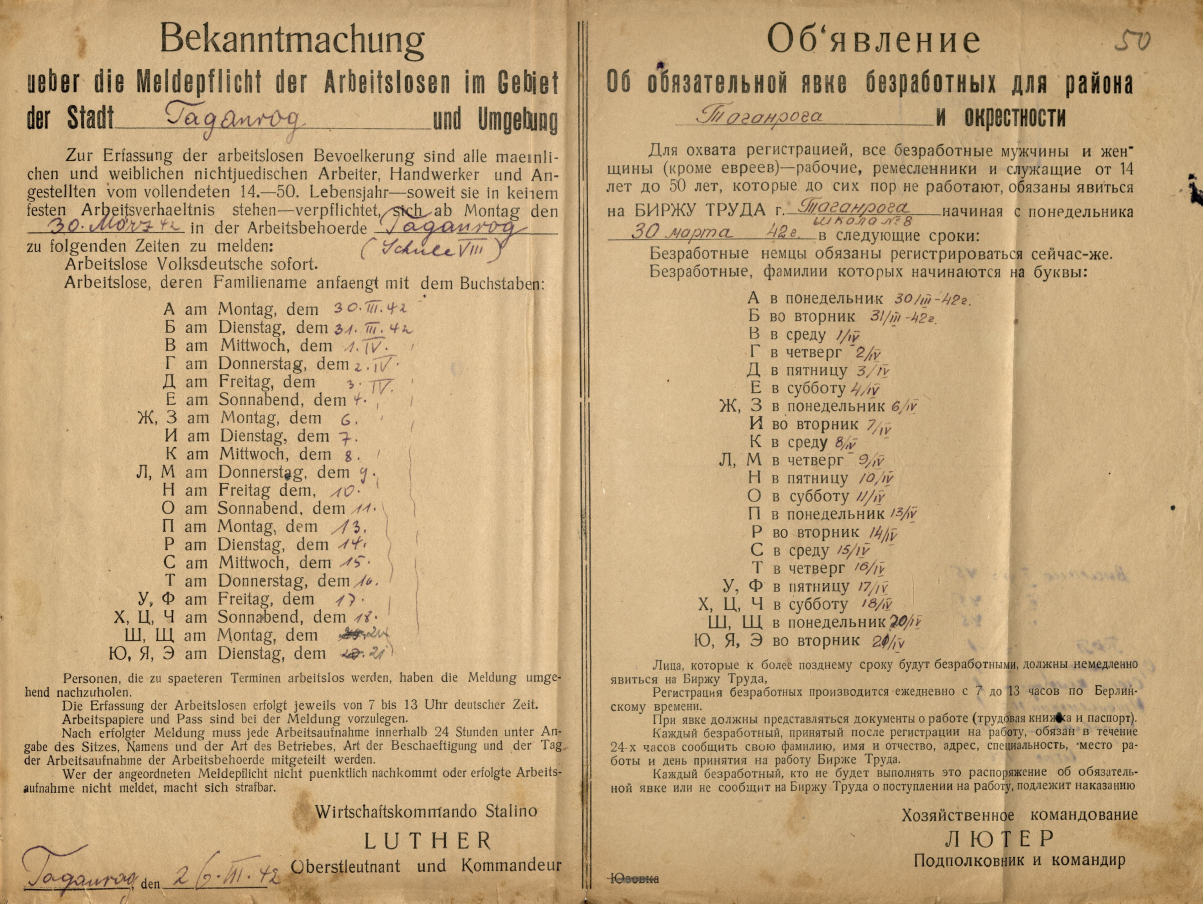 Bekanntmachung
ueber die Meldepflicht der Arbeitslosen im Gebiet
der Stadt Taganrog und Umgebung
Zur Erfassung der arbeitslosen Bevoelkerung sind alle maennli-
chen und weiblichen nichtjuedischen Arbeiter, Handwerker und An-
gestellten vom vollendeten 14.—50. Lebensjahr—soweit sie in keinem
festen Arbeitsverhaeltnis stehen—verpflichtet, sich ab Montag den
30. März 42 in der Arbeitsbehoerde Taganrog
zu folgenden Zeiten zu melden: (Schule VIII)
Arbeitslose Volksdeutsche sofort.
Arbeitslose, deren Familienname anfaengt mit dem Buchstaben:
А am Montag, dem 30.III.42
Б am Dienstag, dem 31.III.42
В am Mittwoch, dem 1.IV.
Г am Donnerstag, dem 2.IV.
Д am Freitag, dem 3.IV.
Е am Sonnabend, dem 4.
Ж, З am Montag, dem 6.
И am Dienstag, dem 7.
К am Mittwoch, dem 8.
Л, М am Donnerstag, dem 9.
Н am Freitag dem, 10.
О am Sonnabend, dem 11.
П am Montag, dem 13.
Р am Dienstag, dem 14.
С am Mittwoch, dem 15.
Т am Donnerstag, dem 16.
У, Ф am Freitag, dem 17.
Х, Ц, Ч am Sonnabend, dem 18.
Ш, Щ am Montag, dem
Ю, Я, Э am Dienstag, dem 21
Personen, die zu spaeteren Terminen arbeitslos werden, haben die Meldung umge-
hend nachzuholen.
Die Erfassung der Arbeitslosen erfolgt jeweils von 7 bis 13 Uhr deutscher Zeit.
Arbeitspapiere und Pass sind bei der Meldung vorzulegen.
Nach erfolgter Meldung muss jede Arbeitsaufnahme innerhalb 24 Stunden unter An-
gabe des Sitzes, Namens und der Art des Betriebes, Art der Beschaeftigung und der Tag
der Arbeitsaufnahme der Arbeitsbehoerde mitgeteilt werden.
Wer der angeordneten Meldepflicht nicht puenktlich nachkommt oder erfolgte Arbeits-
aufnahme nicht meldet, macht sich strafbar.
Wirtschaftskommando Stalino
LUTHER
Oberstleutnant und Kommandeur
Taganrog, den 26.III.42
50
Об'явление
Об обязательной явке безработных для района
Таганрога и окрестности
Для охвата регистрацией, все безработные мужчины и жен-
щины (кроме евреев)—рабочие, ремесленники и служащие от 14
лет до 50 лет, которые до сих пор не работают, обязаны явиться
на БИРЖУ ТРУДА г. Таганрога начиная с понедельника
школа №8
30 марта 42г. в следующие сроки:
Безработные немцы обязаны регистрироваться сейчас-же.
Безработные, фамилии которых начинаются на буквы:
А в понедельник 30/III-42г.
Б во вторник 31/III-42г.
В в среду 1/IV
Г в четверг 2/IV
Д в пятницу 3/IV
Е в субботу 4/IV
Ж, З в понедельник 6/IV
И во вторник 7/IV
К в среду 8/IV
Л, М в четверг 9/IV
Н в пятницу 10/IV
О в субботу 11/IV
П в понедельник 13/IV
Р во вторник 14/IV
С в среду 15/IV
Т в четверг 16/IV
У, Ф в пятницу 17/IV
Х, Ц, Ч в субботу 18/IV
Ш, Щ в понедельник 20/IV
Ю, Я, Э во вторник 21/IV
Лица, которые к более позднему сроку будут безработными, должны немедленно
явиться на Биржу Труда,
Регистрация безработных производится ежедневно с 7 до 13 часов по Берлин-
скому времени.
При явке должны представляться документы о работе (трудовая книжка и паспорт).
Каждый безработный, принятый после регистрации на работу, обязан в течение
24-х часов сообщить свою фамилию, имя и отчество, адрес, специальность, место ра-
боты и день принятия на работу Бирже Труда.
Каждый безработный, кто не будет выполнять это распоряжение об обязатель-
ной явке или не сообщит на Биржу Труда о поступлении на работу, подлежит наказанию
Хозяйственное командование
ЛЮТЕР
Подполковник и командир
Юзовка